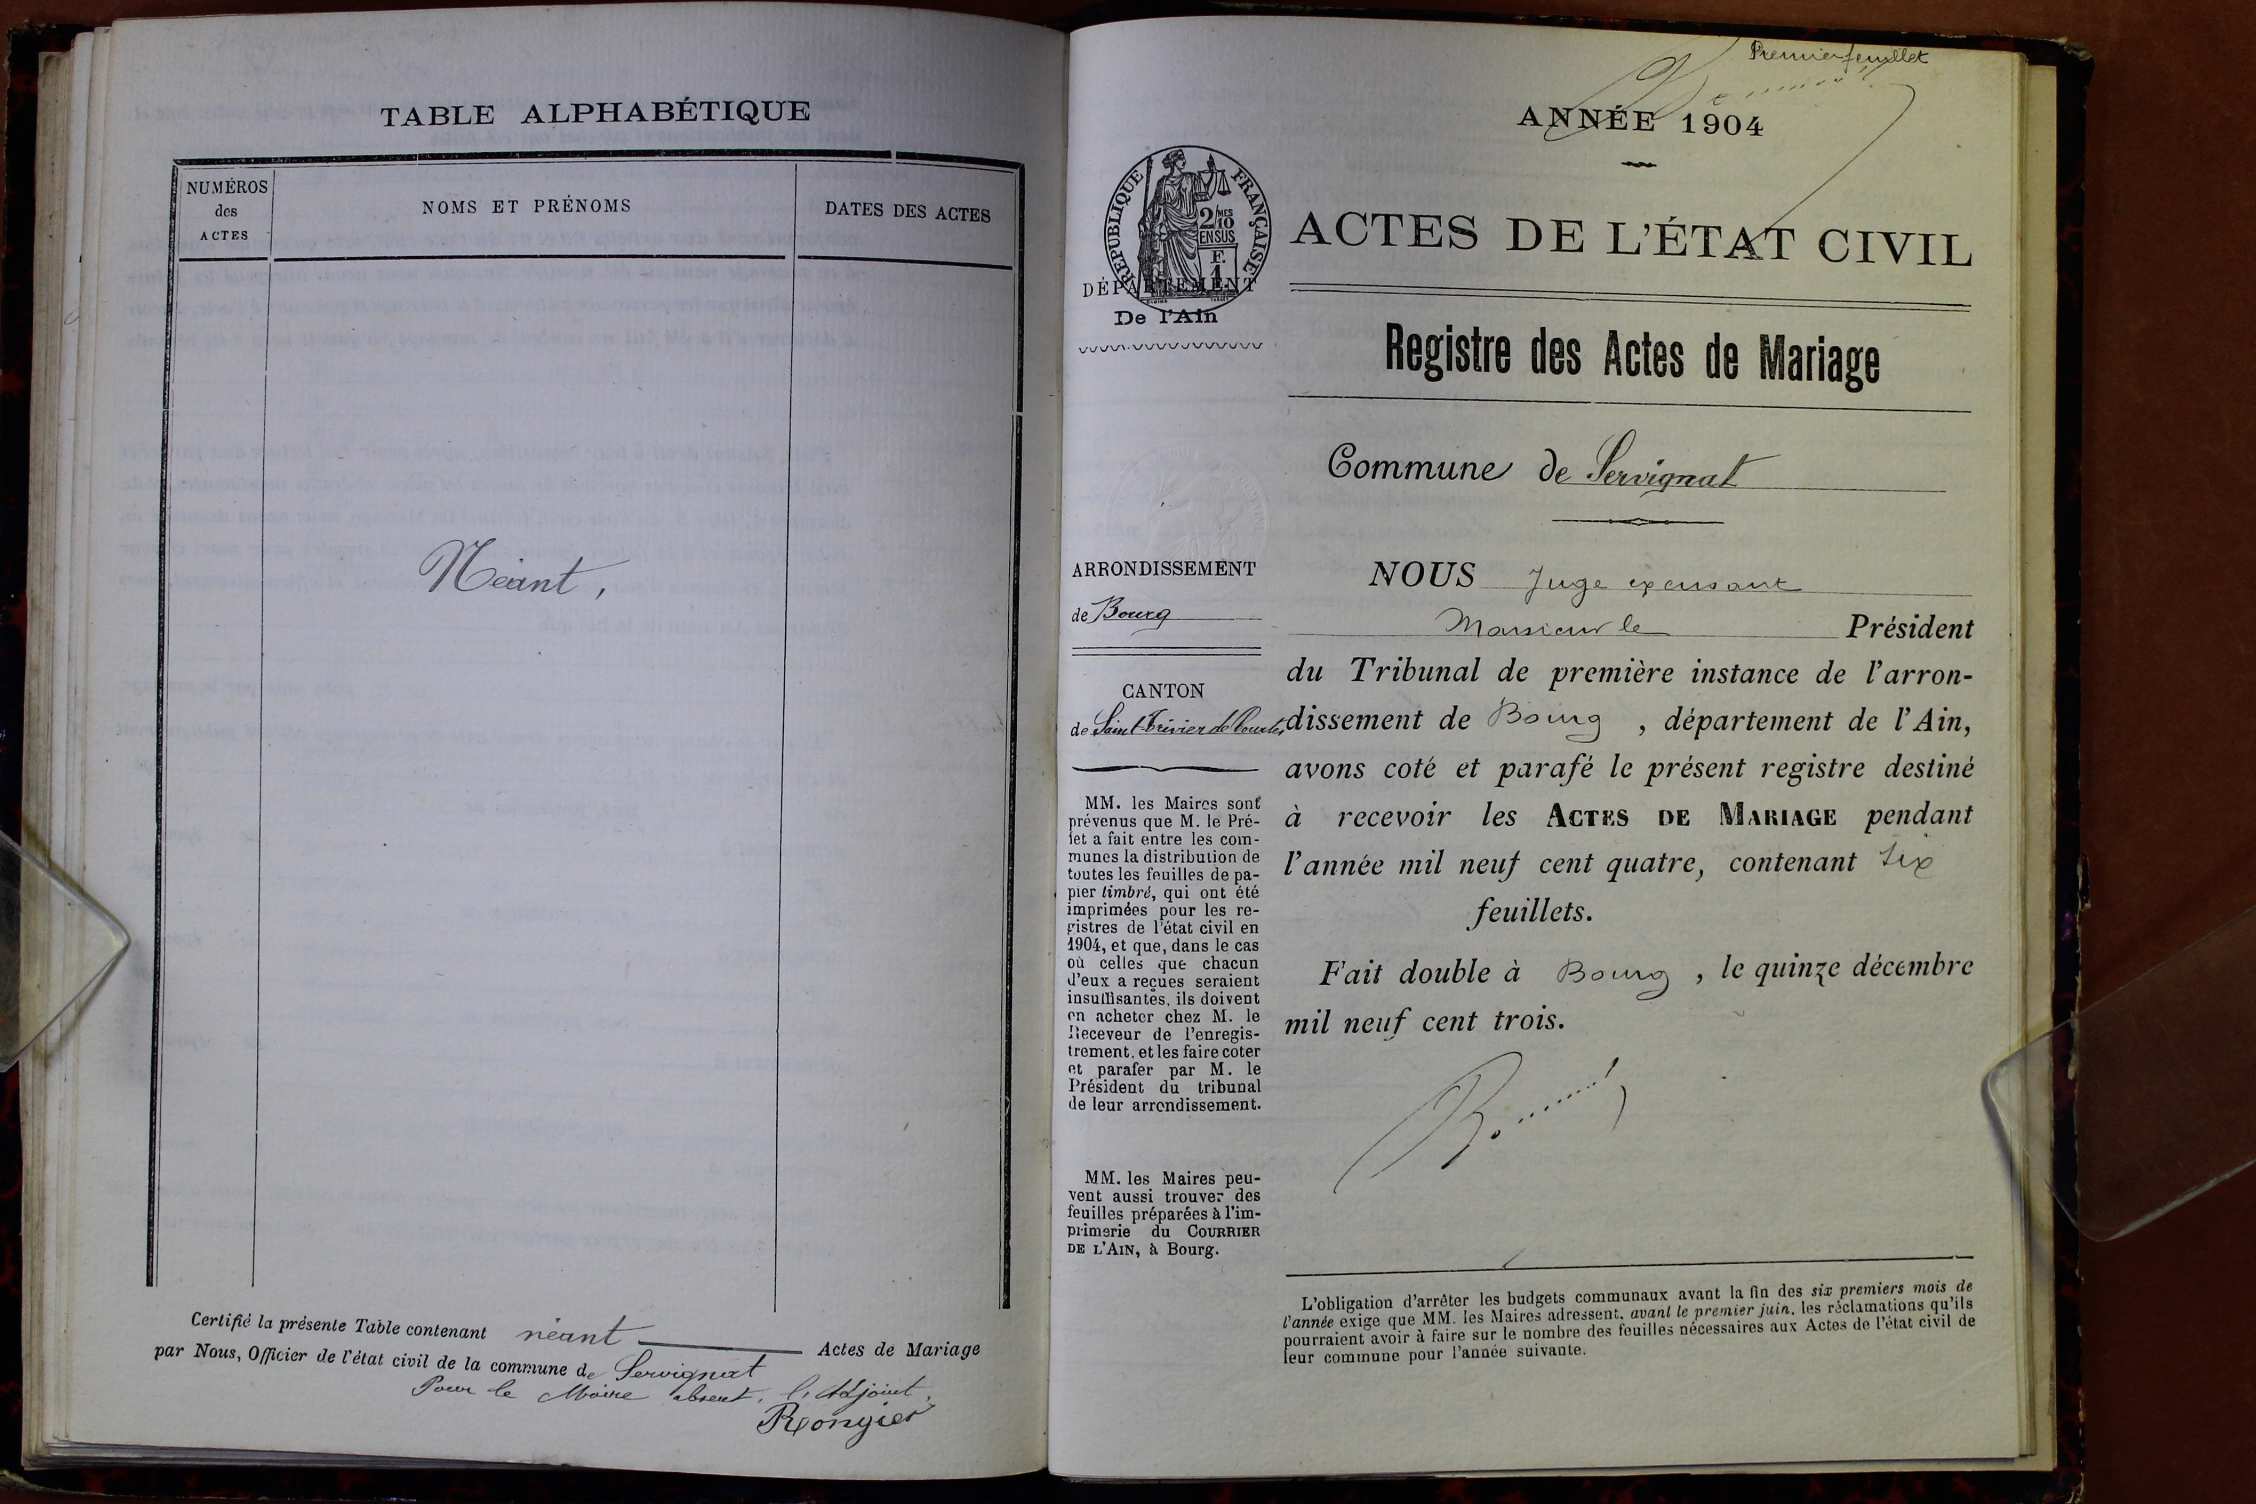 TABLE ALPHABÉTIQUE
NUMÉROS
des
ACTES
NOMS ET PRÉNOMS
DATES DES ACTES
Néant,
Certifié la présente Table contenant néant Actes de Mariage
par Nous, Officier de l'état civil de la commune de Servignat
Pour le Maire absent, l'Adjoint,
Rongier
Premier feuillet
ANNÉE 1904
RÉPUBLIQUE FRANÇAISE
2/10 MES
EN SUS
F.
1
DÉPARTEMENT
De l'Ain
ACTES DE L'ÉTAT CIVIL
Registre des Actes de Mariage
Commune de Servignat
ARRONDISSEMENT
de Bourg
CANTON
de Saint-Trivier de Courtes
MM. les Maires sont
prévenus que M. le Pré-
fet a fait entre les com-
munes la distribution de
toutes les feuilles de pa-
pier timbré, qui ont été
imprimées pour les re-
gistres de l'état civil en
1904, et que, dans le cas
où celles que chacun
d'eux a reçues seraient
insuffisantes, ils doivent
en acheter chez M. le
Receveur de l'enregis-
trement, et les faire coter
et parafer par M. le
Président du tribunal
de leur arrondissement.
MM. les Maires peu-
vent aussi trouver des
feuilles préparées à l'im-
primerie du COURRIER
DE L'AIN, à Bourg.
NOUS Juge excusant
Monsieur le Président
du Tribunal de première instance de l'arron-
dissement de Bourg, département de l'Ain,
avons coté et parafé le présent registre destiné
à recevoir les ACTES DE MARIAGE pendant
l'année mil neuf cent quatre, contenant six
feuillets.
Fait double à Bourg, le quinze décembre
mil neuf cent trois.
L'obligation d'arrêter les budgets communaux avant la fin des six premiers mois de
l'année exige que MM. les Maires adressent, avant le premier juin, les réclamations qu'ils
pourraient avoir à faire sur le nombre des feuilles nécessaires aux Actes de l'état civil de
leur commune pour l'année suivante.